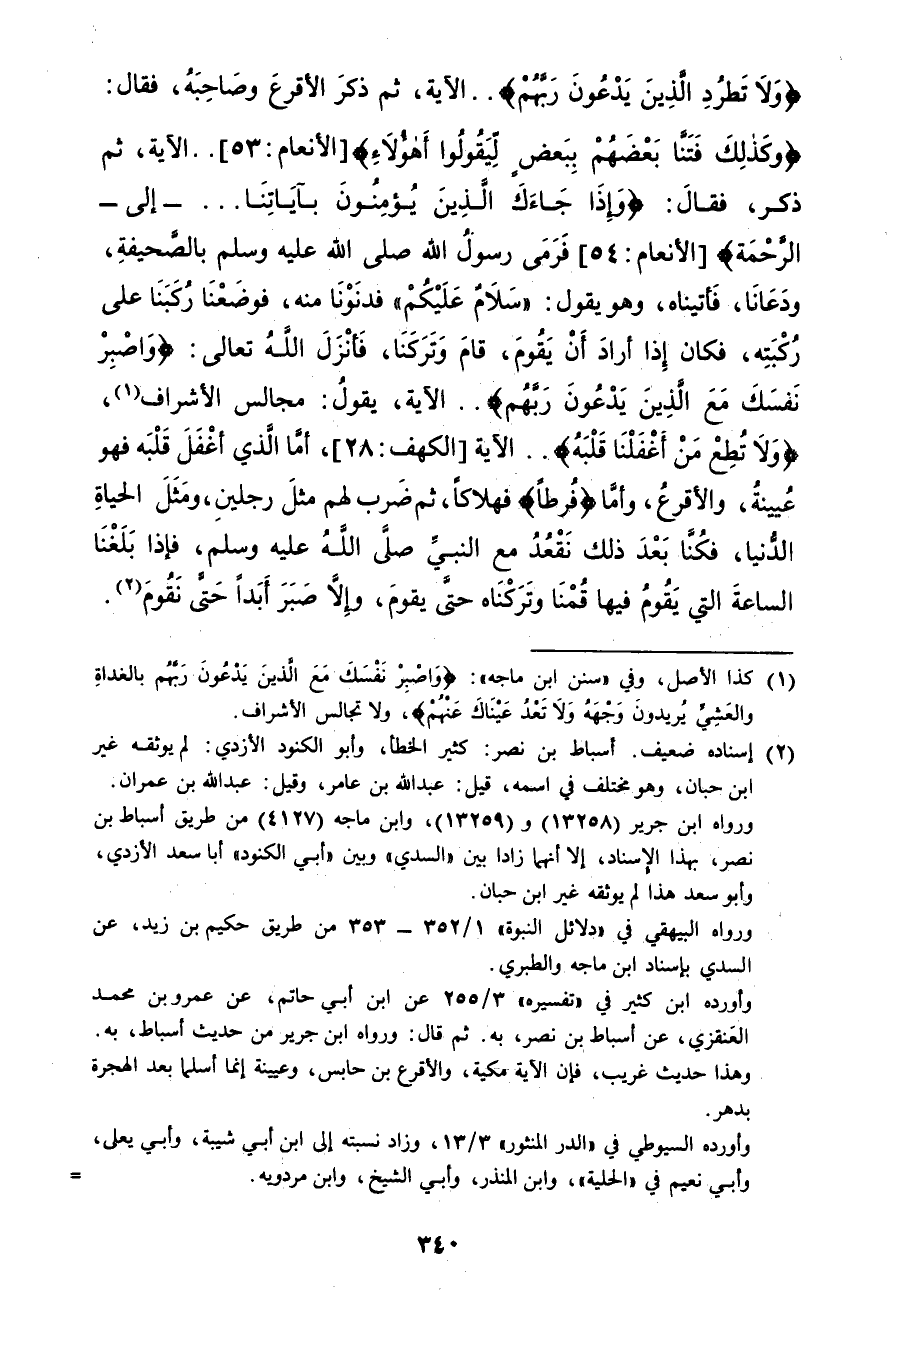 ﴿وَلَا تَطرُدِ الَّذِينَ يَدْعُونَ رَبَّهُمْ﴾. . الآية، ثم ذكرَ الأقرعَ وصَاحِبَهُ، فقال:
﴿وكَذٰلِكَ فَتَنَّا بَعْضَهُمْ بِبَعضٍ لِّيَقُولُوا أَهٰؤُلَاءِ﴾[الأنعام:٥٣]. .الآية، ثم
ذكر، فقالَ: ﴿وَإِذَا جَاءَكَ الَّذِينَ يُؤمِنُونَ بِآيَاتِنَا... ــ إلى ــ
الرَّحْمَة﴾ [الأنعام:٥٤] فَرَمَى رسولُ الله صلى الله عليه وسلم بالصَّحيفةِ،
ودَعَانَا، فَأتيناه، وهو يقول: «سَلَامٌ عَلَيْكُمْ» فدنَوْنَا منه، فوضَعْنَا رُكَبَنَا على
رُكْبَتِه، فكان إِذا أرادَ أَنْ يَقُومَ، قامَ وَتَرَكَنَا، فَأنْزَلَ اللَّهُ تعالى: ﴿وَاصْبِرْ
نَفسَكَ مَعَ الَّذِينَ يَدْعُونَ رَبَّهُم﴾. . الآية، يقولُ: مجالس الأشراف(١)،
﴿وَلَا تُطِعْ مَنْ أَغْفَلْنَا قَلْبَهُ﴾. . الآية [الكهف:٢٨]، أمَّا الَّذي أغْفَلَ قَلْبَه فهو
عُيينةُ، والأقرعُ، وأمَّا ﴿فُرطاً﴾ فهلاكاً، ثم ضَرب لهم مثلَ رجلينِ، ومَثَلَ الحياةِ
الدُّنيا، فكُنَّا بَعْدَ ذلك نَقْعُدُ مع النبيِّ صلَّى اللَّهُ عليه وسلم، فإذا بَلَغْنَا
الساعةَ التي يَقُومُ فيها قُمْنَا وتَرَكْنَاه حتَّى يقومَ، وإلَّا صَبَرَ أَبَداً حَتَّى نَقُومَ(٢).
(١) كذا الأصل، وفي «سنن ابن ماجه»: ﴿وَاصْبِرْ نَفْسَكَ مَعَ الَّذينَ يَدعُونَ رَبَّهُم بالغداةِ
والعَشِيِّ يُريدونَ وَجْهَهُ وَلَا تَعْدُ عَيْنَاكَ عَنْهُمْ﴾، ولا تجالس الأشراف.
(٢) إسناده ضعيف. أسباط بن نصر: كثير الخطأ، وأبو الكنود الأزدي: لم يوثقه غير
ابن حبان، وهو مختلف في اسمه، قيل: عبدالله بن عامر، وقيل: عبدالله بن عمران.
ورواه ابن جرير (١٣٢٥٨) و (١٣٢٥٩)، وابن ماجه (٤١٢٧) من طريق أسباط بن
نصر، بهذا الإسناد، إلا أنهما زادا بين «السدي» وبين «أبي الكنود» أبا سعد الأزدي،
وأبو سعد هذا لم يوثقه غير ابن حبان.
ورواه البيهقي في «دلائل النبوة» ٣٥٢/١ ــ ٣٥٣ من طريق حكيم بن زيد، عن
السدي بإسناد ابن ماجه والطبري.
وأورده ابن كثير في «تفسيره» ٢٥٥/٣ عن ابن أبي حاتم، عن عمرو بن محمد
العنقزي، عن أسباط بن نصر، به. ثم قال: ورواه ابن جرير من حديث أسباط، به.
وهذا حديث غريب، فإن الآية مكية، والأقرع بن حابس، وعيينة إنما أسلما بعد الهجرة
بدهر.
وأورده السيوطي في «الدر المنثور» ١٣/٣، وزاد نسبته إلى ابن أبي شيبة، وأبي يعلى،
وأبي نعيم في «الحلية»، وابن المنذر، وأبي الشيخ، وابن مردويه. =
٣٤٠